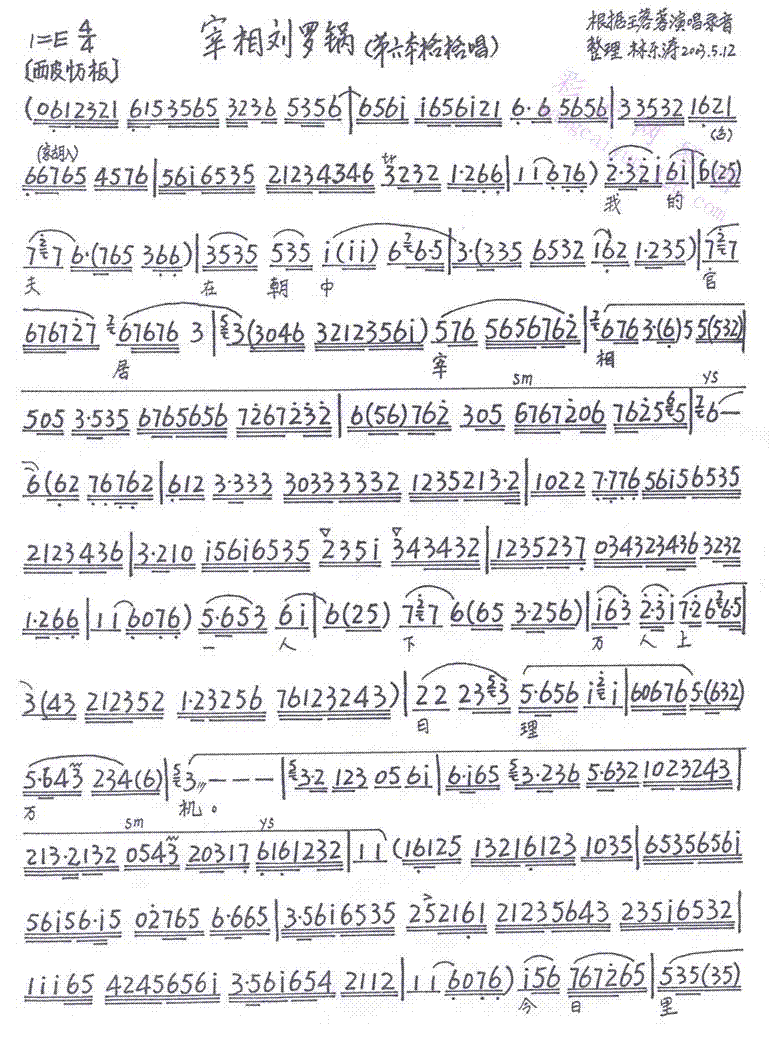 1=E 4/4 宰相刘罗锅(第六本格格唱) 根据王蓉蓉演唱录音
[西皮忉板] 整理 林东涛 2003.5.12
(0612321 6153565 3236 5356 | 656i i656i21 6·6 5656 | 33532 1621
66765 4576 | 56i6535 21234346 3232 1·266 | 1i676) 2·32i 6i | 6(25)
我 的
727 6·(765 366) | 3535 535 i(ii) 676·5 | 3·(335 6532 162 1·235) | 737
夫 在 朝 中 官
676727 267676 3 | 53(3046 3212356i) 576 5656762 | 26763·(6)55(532)
居 宰 相
sm ys
505 3·535 6765656 7267232 | 6(56)762 305 6767206 762565 | 76—
6(62 76762 | 612 3·333 30333332 1235213·2 | 1022 7·776 56i56535
2123436 | 3·210 i56i6535 235i 343432 | 1235237 0343234363232
1·266 | 1i6076) 5·653 6i | 6(25) 727 6(65 3·256) | i63 2·3i7·2676·5
一 人 下 万 人 上
3(43 212352 1·23256 76123243) | 22 2353 5·656 i2i | 606765·(632)
日 理
5·643 234(6) | 53 — — — | 53·2 123 056i | 6·i65 53·236 5·632 1023243 |
万 机。
sm ys
213·2132 0543 20317 6161232 | 1i (16125 13216123 1035 | 6535656i
56i56·i5 02765 6·665 | 3·56i6535 252161 21235643 235i6532 |
1ii65 4245656i 3·56i654 2112 | 1i6076) i56 767265 | 535(35)
今 日 里